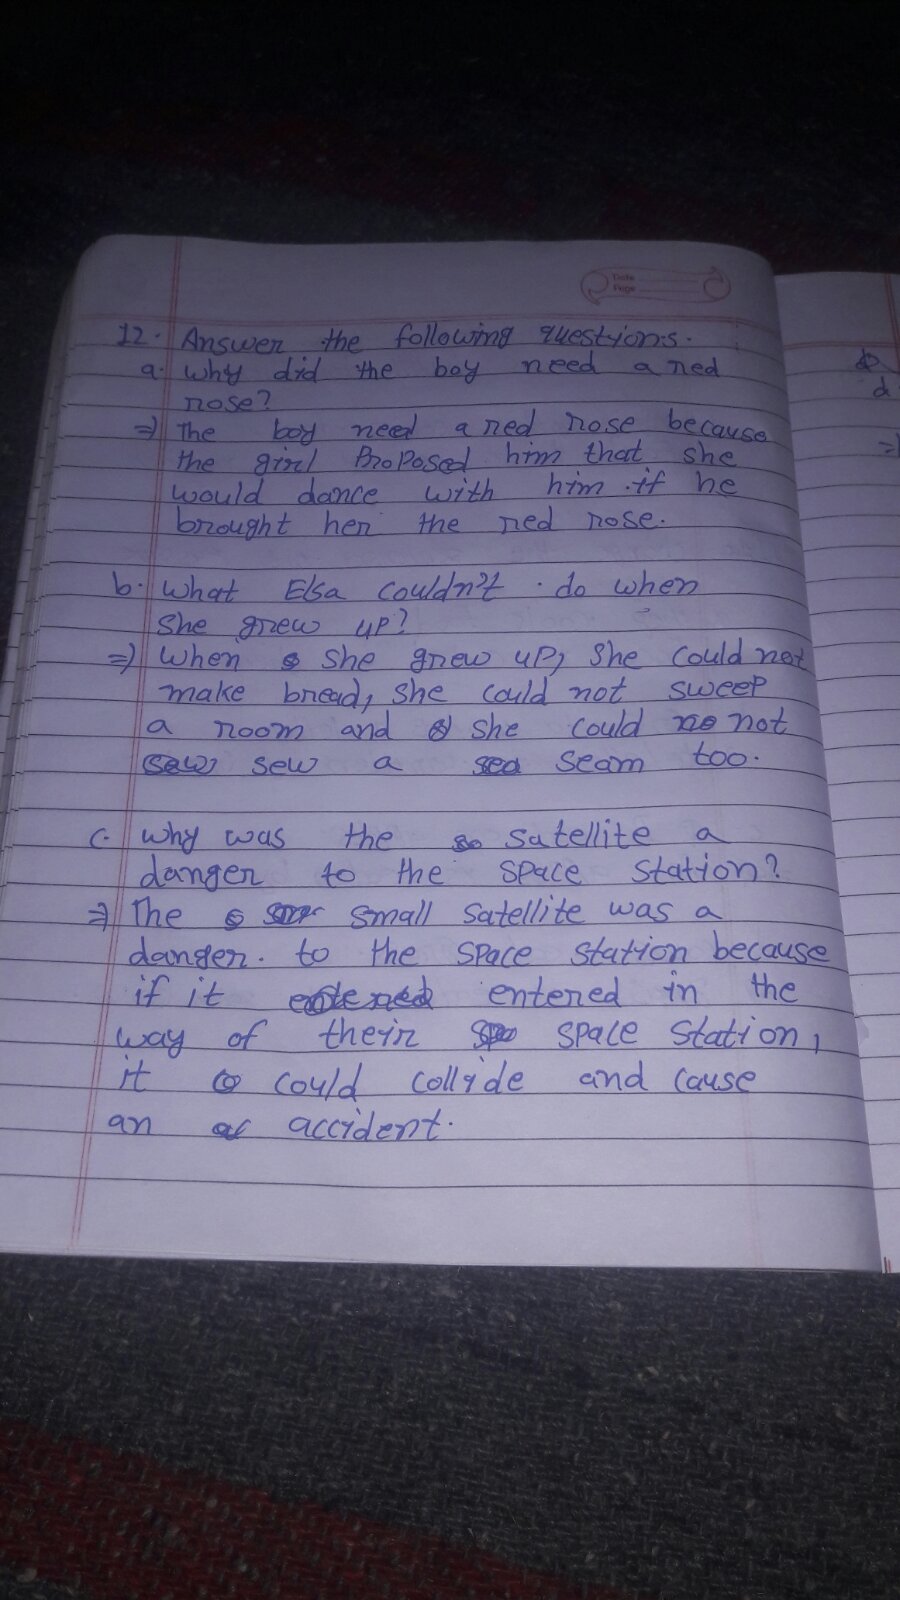 Date
Page
12. Answer the following questions.
a. Why did the boy need a red
rose?
=) The boy need a red rose because
the girl Proposed him that she
would dance with him if he
brought her the red rose.
b. What Elsa couldn't do when
She grew up?
=) When she grew up, She could not
make bread, she could not sweep
a room and she could not
sew a seam too.
C. Why was the Satellite a
danger to the space station?
=) The small satellite was a
danger. to the space station because
if it entered in the
way of their space station,
it could collide and cause
an accident.
d
=)